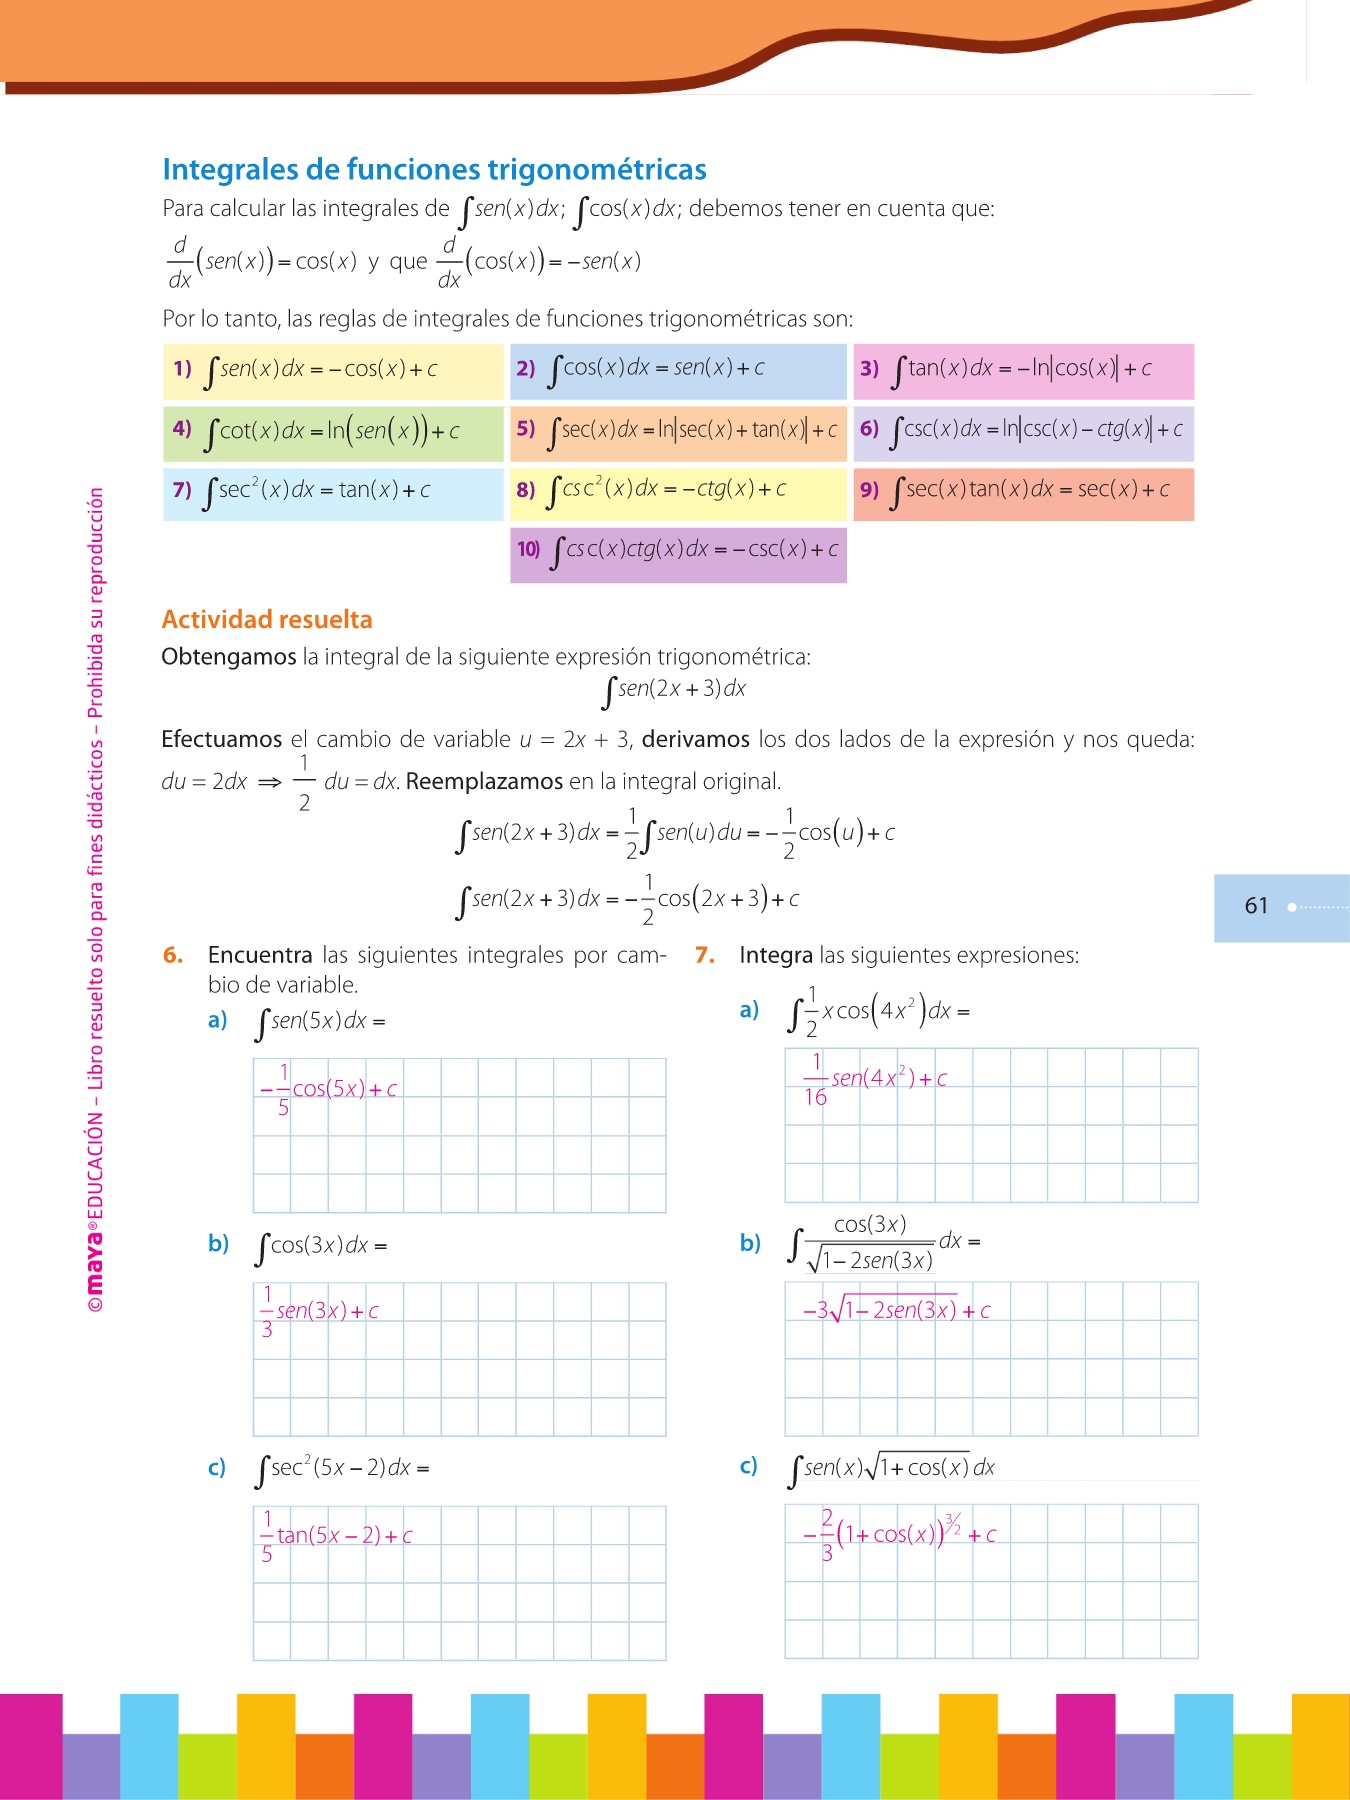 Integrales de funciones trigonométricas
Para calcular las integrales de ∫sen(x)dx; ∫cos(x)dx; debemos tener en cuenta que:
d/dx (sen(x)) = cos(x) y que d/dx (cos(x)) = −sen(x)
Por lo tanto, las reglas de integrales de funciones trigonométricas son:
1) ∫sen(x)dx = −cos(x) + c
2) ∫cos(x)dx = sen(x) + c
3) ∫tan(x)dx = −ln|cos(x)| + c
4) ∫cot(x)dx = ln(sen(x)) + c
5) ∫sec(x)dx = ln|sec(x) + tan(x)| + c
6) ∫csc(x)dx = ln|csc(x) − ctg(x)| + c
7) ∫sec²(x)dx = tan(x) + c
8) ∫csc²(x)dx = −ctg(x) + c
9) ∫sec(x)tan(x)dx = sec(x) + c
10) ∫csc(x)ctg(x)dx = −csc(x) + c
Actividad resuelta
Obtengamos la integral de la siguiente expresión trigonométrica:
∫sen(2x + 3)dx
Efectuamos el cambio de variable u = 2x + 3, derivamos los dos lados de la expresión y nos queda:
du = 2dx ⇒ 1/2 du = dx. Reemplazamos en la integral original.
∫sen(2x + 3)dx = 1/2 ∫sen(u)du = −1/2 cos(u) + c
∫sen(2x + 3)dx = −1/2 cos(2x + 3) + c
61
6. Encuentra las siguientes integrales por cam-
bio de variable.
a) ∫sen(5x)dx =
−1/5 cos(5x) + c
b) ∫cos(3x)dx =
1/3 sen(3x) + c
c) ∫sec²(5x − 2)dx =
1/5 tan(5x − 2) + c
7. Integra las siguientes expresiones:
a) ∫1/2 x cos(4x²)dx =
1/16 sen(4x²) + c
b) ∫cos(3x)/√(1 − 2sen(3x)) dx =
−3√(1 − 2sen(3x)) + c
c) ∫sen(x)√(1 + cos(x)) dx
−2/3 (1 + cos(x))^3/2 + c
©maya® EDUCACIÓN – Libro resuelto solo para fines didácticos – Prohibida su reproducción